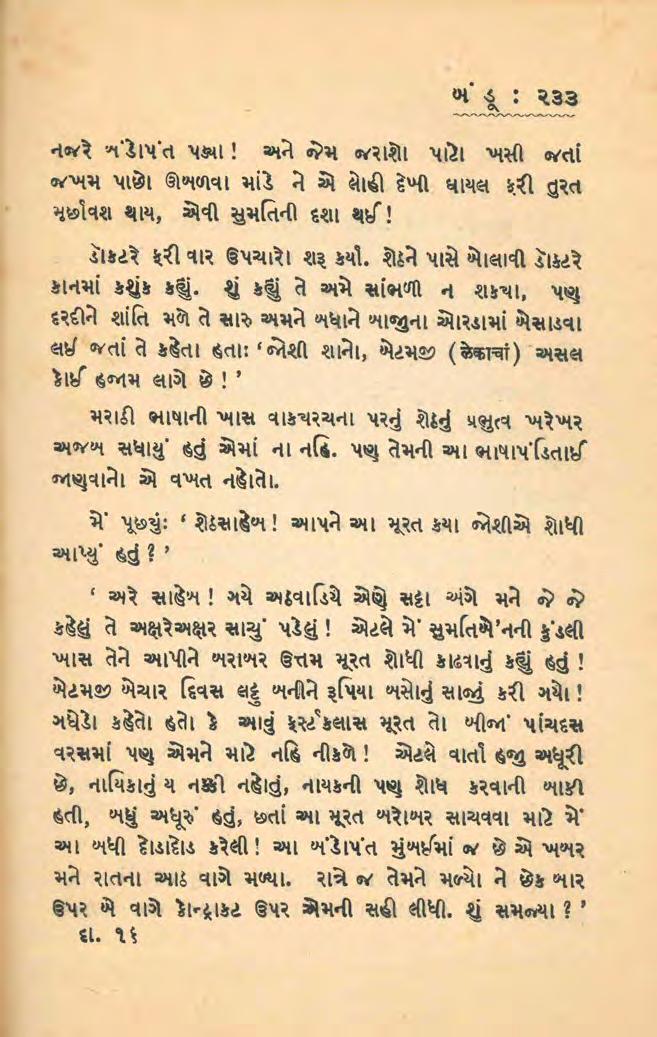 બંડૂ : ૨૩૩
નજરે બંડોપંત પડ્યા! અને જેમ જરાશો પાટો ખસી જતાં
જખમ પાછો ઊબળવા માંડે ને એ લોહી દેખી ઘાયલ ફરી તુરત
મૂર્છાવશ થાય, એવી સુમતિની દશા થઈ!
ડૉકટરે ફરી વાર ઉપચારો શરૂ કર્યાં. શેઠને પાસે બોલાવી ડૉકટરે
કાનમાં કશુંક કહ્યું. શું કહ્યું તે અમે સાંભળી ન શક્યા, પણ
દરદીને શાંતિ મળે તે સારુ અમને બધાને બાજુના ઓરડામાં બેસાડવા
લઈ જતાં તે કહેતા હતા: ‘જોશી શાનો, બેટમજી (ळेकाचां) અસલ
કોઈ હજામ લાગે છે!’
મરાઠી ભાષાની ખાસ વાક્યરચના પરનું શેઠનું પ્રભુત્વ ખરેખર
અજબ સધાયું હતું એમાં ના નહિ. પણ તેમની આ ભાષાપંડિતાઈ
જાણવાનો એ વખત નહોતો.
મેં પૂછ્યું: ‘શેઠસાહેબ! આપને આ મૂરત કયા જોશીએ શોધી
આપ્યું હતું?’
‘અરે સાહેબ! ગયે અઠવાડિયે એણે સટ્ટા અંગે મને જે જે
કહેલું તે અક્ષરેઅક્ષર સાચું પડેલું! એટલે મેં સુમતિબે'નની કુંડલી
ખાસ તેને આપીને બરાબર ઉત્તમ મૂરત શોધી કાઢવાનું કહ્યું હતું!
બેટમજી બેચાર દિવસ લટ્ટુ બનીને રૂપિયા બસોનું સાબ્તું કરી ગયો!
ગધેડો કહેતો હતો કે આવું ફર્સ્ટક્લાસ મૂરત તો બીજાં પાંચદસ
વરસમાં પણ એમને માટે નહિ નીકળે! એટલે વાર્તા હજી અધૂરી
છે, નાયિકાનું ય નક્કી નહોતું, નાયકની પણ શોધ કરવાની બાકી
હતી, બધું અધૂરું હતું, છતાં આ મૂરત બરોબર સાચવવા માટે મેં
આ બધી દોડાદોડ કરેલી! આ બંડોપંત મુંબઈમાં જ છે એ ખબર
મને રાતના આઠ વાગે મળ્યા. રાત્રે જ તેમને મળ્યો ને છેક બાર
ઉપર બે વાગે કૉન્ટ્રાકટ ઉપર એમની સહી લીધી. શું સમજ્યા?’
દા. ૧૬